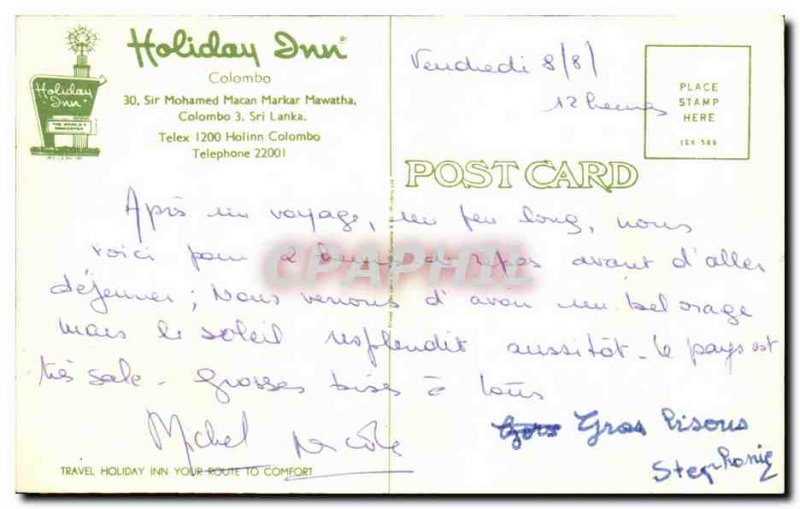 Holiday Inn®
Colombo
30, Sir Mohamed Macan Markar Mawatha,
Colombo 3, Sri Lanka.
Telex 1200 Holinn Colombo
Telephone 22001
Holiday Inn®
Vendredi 8/8/
12 heures
PLACE
STAMP
HERE
POST CARD
Après un voyage, un peu long, nous
voici pour 2 heures de repos avant d'aller
déjeuner ; Nous venons d'avoir un bel orage
mais le soleil resplendit aussitôt - le pays est
très sale - Grosses bises à tous
Michel Nicole
Gros bisous
Stephanie
TRAVEL HOLIDAY INN YOUR ROUTE TO COMFORT
CPAPHIL